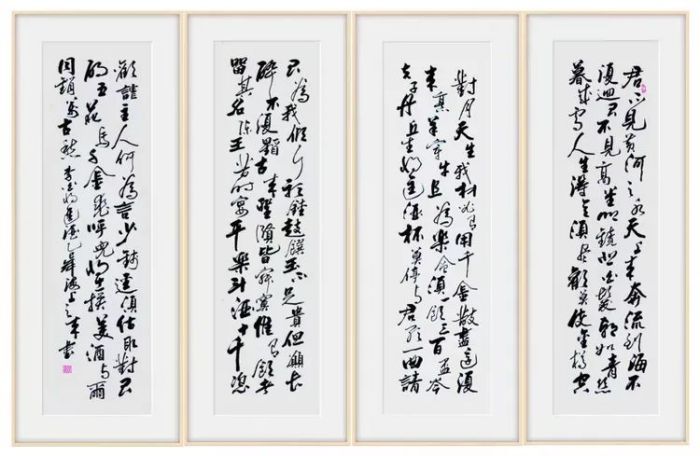 君不見黃河之水天上來奔流到海不
復迴君不見高堂明鏡悲白髮朝如青絲
暮成雪人生得意須盡歡莫使金樽空
對月天生我材必有用千金散盡還復
來烹羊宰牛且為樂會須一飲三百盃岑
夫子丹丘生將進酒杯莫停與君歌一曲請
君為我傾耳聽鐘鼓饌玉不足貴但願長
醉不復醒古來聖賢皆寂寞惟有飲者
留其名陳王昔時宴平樂斗酒十千恣
歡謔主人何為言少錢逕須沽取對君
酌五花馬千金裘呼兒將出換美酒與爾
同銷萬古愁李白將進酒